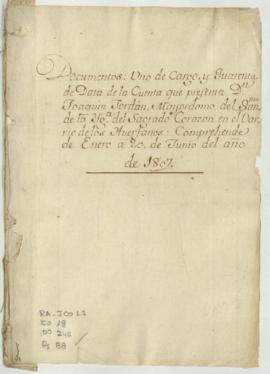 Documentos: Uno de Cargo, y Quarenta
de Data de la Cuenta que presenta Dn
Joaquin Jordán, Mayordomo del
de la del Sagrado Corazon en el Bar-
rio de los Huerfanos: Comprehende
de Enero a 20,, de Junio del año
de 1807.